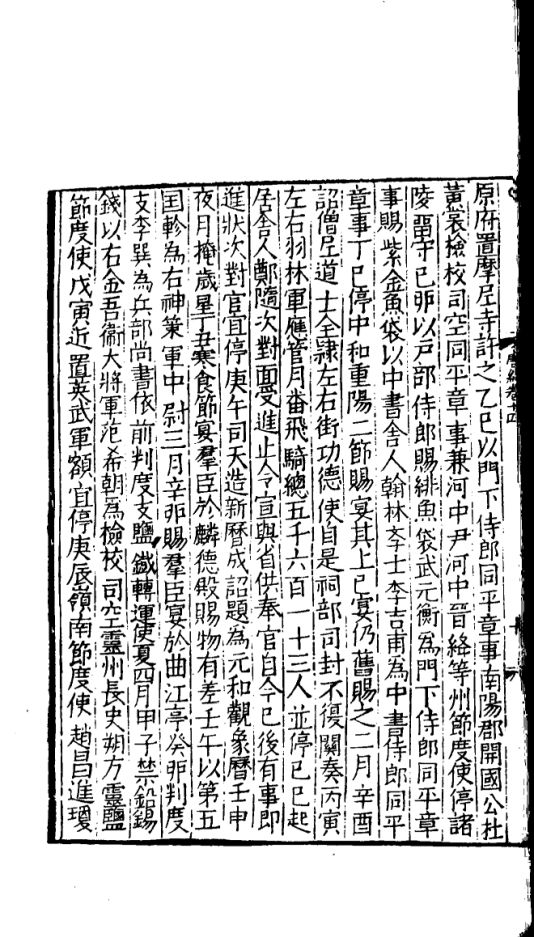 原府置摩尼寺許之乙巳以門下侍郎同平章事南陽郡開國公杜
黃裳檢校司空同平章事兼河中尹河中晉絳等州節度使停諸
陵留守己卯以戸部侍郎賜緋魚袋武元衡為門下侍郎同平章
事賜紫金魚袋以中書舎人翰林李士李吉甫為中書侍郎同平
章事丁巳停中和重陽二節賜宴其上巳宴仍舊賜之二月辛酉
詔僧尼道士全隸左右街功德使自是祠部司封不復關奏丙寅
左右羽林軍應管月畨飛騎總五千六百一十三人並停己巳起
居舎人鄭隨次對面受進止令宣與省供奉官自今已後有事即
進狀次對官宜停庚午司天造新曆成詔題為元和觀象曆壬申
夜月掩歲星丁丑寒食節宴羣臣於麟德殿賜物有差壬午以第五
国軫為右神策軍中尉三月辛卯賜羣臣宴於曲江亭癸卯判度
支李巽為兵部尚書依前判度支鹽鐵轉運使夏四月甲子禁鉛錫
錢以右金吾衞大將軍范希朝為檢校司空靈州長史朔方靈鹽
節度使戊寅近置英武軍額宜停庚辰嶺南節度使趙昌進瓊